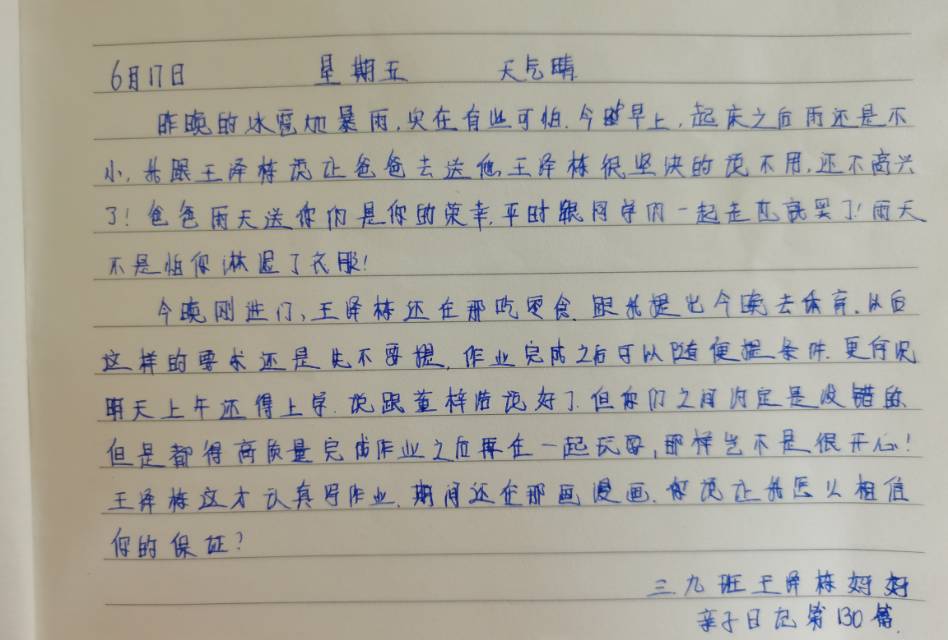 6月17日 星期五 天气晴
昨晚的冰雹加暴雨,实在有些可怕.今早上,起床之后雨还是不
小,我跟王泽栋说让爸爸去送他,王泽栋很坚决的说不用,还不高兴
了!爸爸雨天送你们是你的荣幸,平时跟同学们一起走也就罢了!雨天
不是怕你淋湿了衣服!
今晚刚进门,王泽栋还在那吃零食.跟我提出今晚去体育.以后
这样的要求还是先不要提,作业完成之后可以随便提条件.更何况
明天上午还得上学.说跟董梓皓说好了.但你们之间约定是没错的
但是都得高质量完成作业之后再在一起玩耍,那样岂不是很开心!
王泽栋这才认真写作业.期间还在那画漫画.你说让我怎么相信
你的保证?
三.九班王泽栋妈妈
亲子日记第130篇.